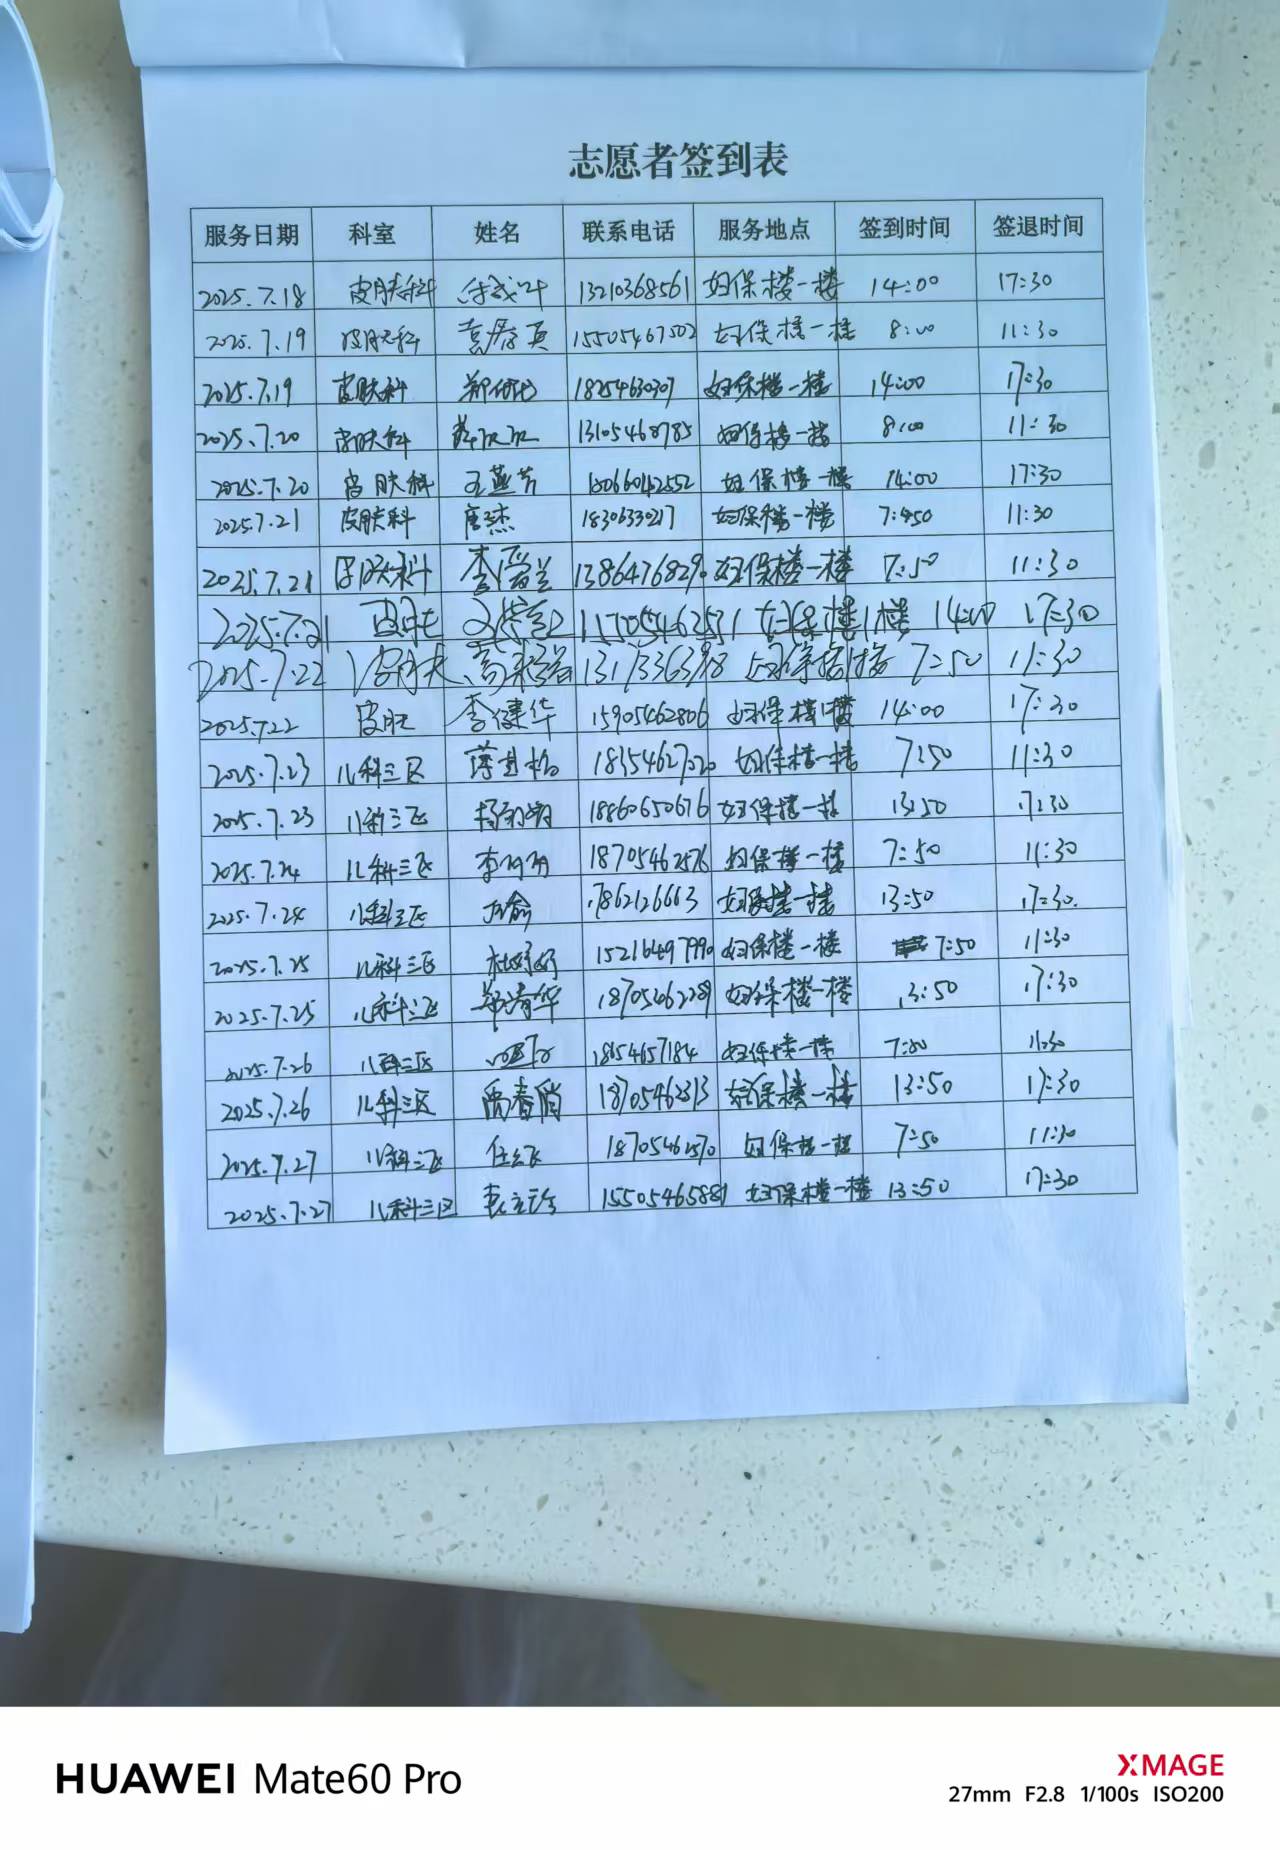 志愿者签到表
服务日期 科室 姓名 联系电话 服务地点 签到时间 签退时间
2025.7.18 皮肤科 13210368561 妇保楼一楼 14:00 17:30
2025.7.19 皮肤科 15505467502 妇保楼一楼 8:00 11:30
2025.7.19 皮肤科 18254630307 妇保楼一楼 14:00 17:30
2025.7.20 皮肤科 13105468785 妇保楼一楼 8:00 11:30
2025.7.20 皮肤科 王燕芳 18066042552 妇保楼一楼 14:00 17:30
2025.7.21 皮肤科 唐杰 18306330217 妇保楼一楼 11:30
2025.7.21 皮肤科 妇保楼一楼 7:50 11:30
2025.7.21 15505462531 妇保楼1楼 14:00 17:30
2025.7.22 皮肤 妇保楼1楼 7:50 11:30
2025.7.22 皮肤 李健华 15905462806 妇保楼1楼 14:00 17:30
2025.7.23 儿科三区 18354627020 妇保楼一楼 7:50 11:30
2025.7.23 儿科三区 18860650676 妇保楼一楼 13:50 17:30
2025.7.24 儿科三区 18705462576 妇保楼一楼 7:50 11:30
2025.7.24 儿科三区 17862126663 妇保楼一楼 13:50 17:30.
2025.7.25 儿科三区 杜婷婷 15216497990 妇保楼一楼 7:50 11:30
2025.7.25 儿科三区 郭清华 18705462289 妇保楼一楼 13:50 17:30
2025.7.26 儿科三区 18654657184 妇保楼一楼 11:30
2025.7.26 儿科三区 禹春俏 18705462313 妇保楼一楼 13:50 17:30
2025.7.27 儿科三区 任云飞 18705462570 妇保楼一楼 7:50 11:30
2025.7.27 儿科三区 15505465881 妇保楼一楼 13:50 17:30
HUAWEI Mate60 Pro
XMAGE
27mm F2.8 1/100s ISO200